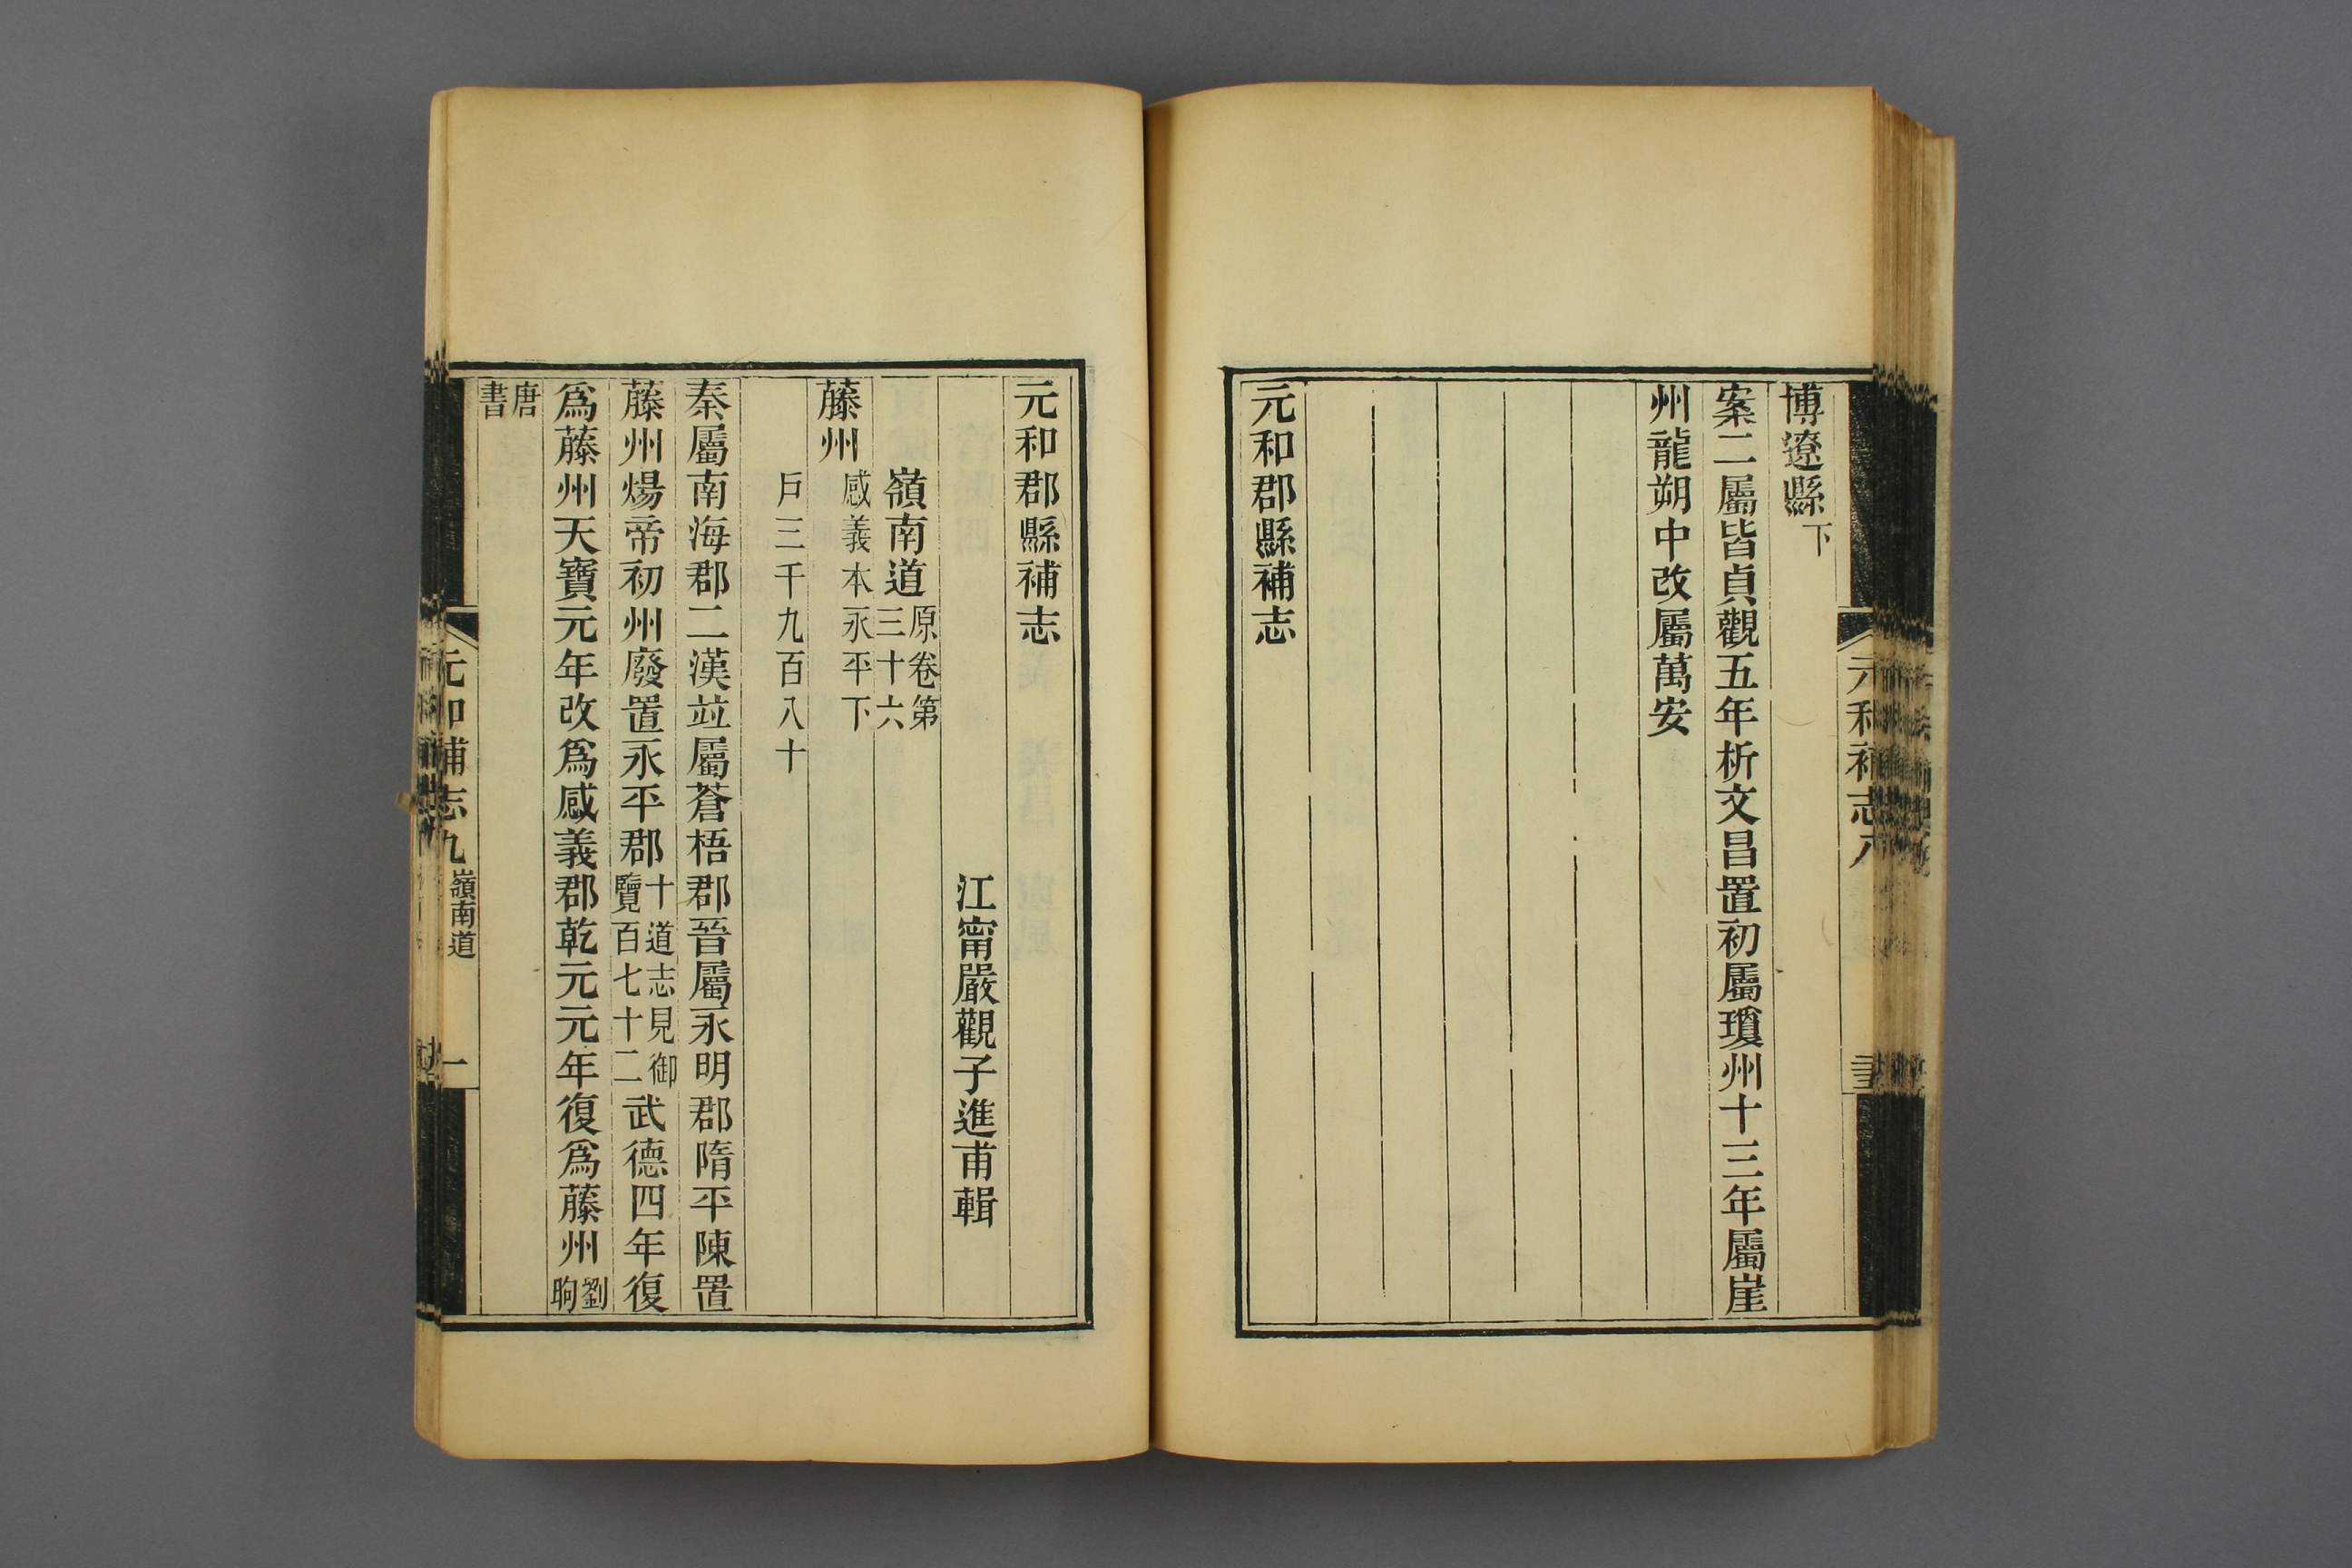 博遼縣下
案二屬皆貞觀五年析文昌置初屬瓊州十三年屬崖
州龍朔中改屬萬安
元和郡縣補志
元和郡縣補志
江甯嚴觀子進甫輯
嶺南道原卷第三十六
藤州感義本永平下
戶三千九百八十
秦屬南海郡二漢竝屬蒼梧郡晉屬永明郡隋平陳置
藤州煬帝初州廢置永平郡十道志見御覽百七十二武德四年復
爲藤州天寶元年改爲感義郡乾元元年復爲藤州劉昫
唐書
元和補志九嶺南道
一